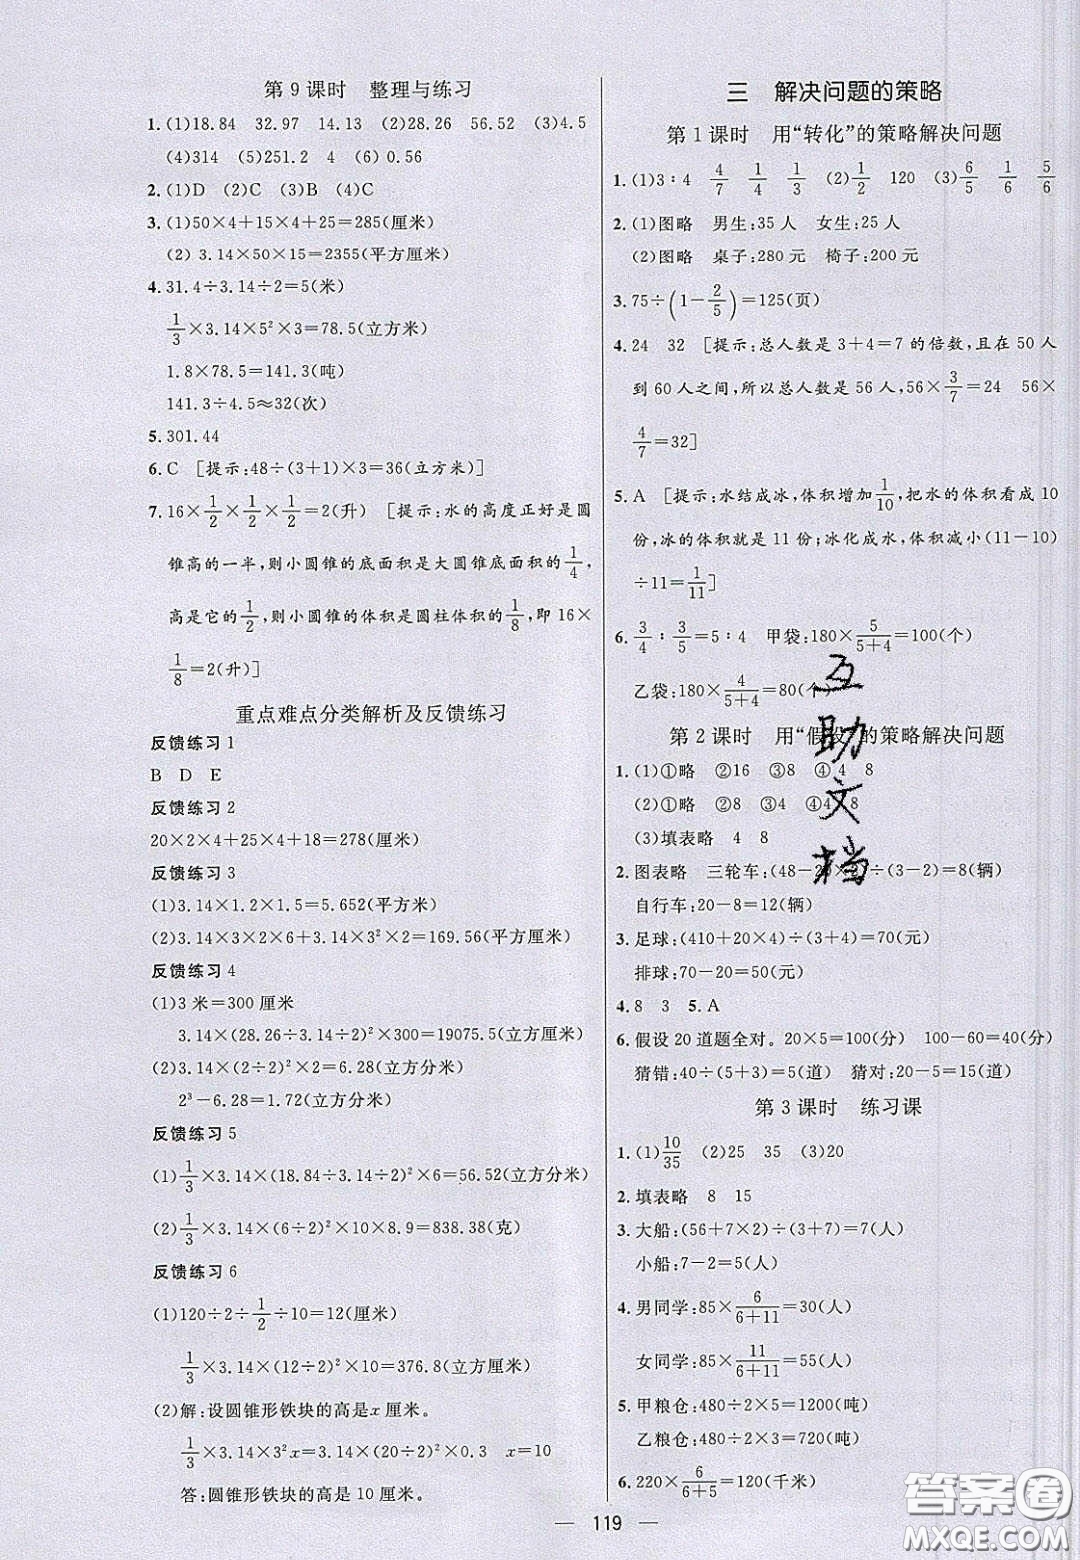 第9课时　整理与练习
1.(1)18.84　32.97　14.13　(2)28.26　56.52　(3)4.5
(4)314　(5)251.2　4　(6)0.56
2.(1)D　(2)C　(3)B　(4)C
3.(1)50×4+15×4+25=285(厘米)
(2) 3.14×50×15=2355(平方厘米)
4.31.4÷3.14÷2=5(米)
1/3×3.14×5²×3=78.5(立方米)
1.8×78.5=141.3(吨)
141.3÷4.5≈32(次)
5.301.44
6.C　[提示:48÷(3+1)×3=36(立方米)]
7.16×1/2×1/2×1/2=2(升)　[提示:水的高度正好是圆
锥高的一半,则小圆锥的底面积是大圆锥底面积的1/4,
高是它的1/2,则小圆锥的体积是圆柱体积的1/8,即16×
1/8=2(升)]
重点难点分类解析及反馈练习
反馈练习1
B　D　E
反馈练习2
20×2×4+25×4+18=278(厘米)
反馈练习3
(1)3.14×1.2×1.5=5.652(平方米)
(2)3.14×3×2×6+3.14×3²×2=169.56(平方厘米)
反馈练习4
(1)3米=300厘米
3.14×(28.26÷3.14÷2)²×300=19075.5(立方厘米)
(2)3.14×(2÷2)²×2=6.28(立方分米)
2³-6.28=1.72(立方分米)
反馈练习5
(1)1/3×3.14×(18.84÷3.14÷2)²×6=56.52(立方分米)
(2)1/3×3.14×(6÷2)²×10×8.9=838.38(克)
反馈练习6
(1)120÷2÷1/2÷10=12(厘米)
1/3×3.14×(12÷2)²×10=376.8(立方厘米)
(2)解:设圆锥形铁块的高是x厘米。
1/3×3.14×3²x=3.14×(20÷2)²×0.3　x=10
答:圆锥形铁块的高是10厘米。
三　解决问题的策略
第1课时　用“转化”的策略解决问题
1.(1)3∶4　4/7　1/4　1/3　(2)1/2　120　(3)6/5　1/6　5/6
2.(1)图略　男生:35人　女生:25人
(2)图略　桌子:280元　椅子:200元
3.75÷(1-2/5)=125(页)
4.24　32　[提示:总人数是3+4=7的倍数,且在50人
到60人之间,所以总人数是56人,56×3/7=24　56×
4/7=32]
5.A　[提示:水结成冰,体积增加1/10,把水的体积看成10
份,冰的体积就是11份;冰化成水,体积减小(11-10)
÷11=1/11]
6.3/4∶3/5=5∶4　甲袋:180×5/(5+4)=100(个)
乙袋:180×4/(5+4)=80(个)
第2课时　用“假设”的策略解决问题
1.(1)①略　②16　③8　④4　8
(2)①略　②8　③4　④4　8
(3)填表略　4　8
2.图表略　三轮车:(48-20×2)÷(3-2)=8(辆)
自行车:20-8=12(辆)
3.足球:(410+20×4)÷(3+4)=70(元)
排球:70-20=50(元)
4.8　3　5.A
6.假设20道题全对。20×5=100(分)　100-60=40(分)
猜错:40÷(5+3)=5(道)　猜对:20-5=15(道)
第3课时　练习课
1.(1)10/35　(2)25　35　(3)20
2.填表略　8　15
3.大船:(56+7×2)÷(3+7)=7(人)
小船:7-2=5(人)
4.男同学:85×6/(6+11)=30(人)
女同学:85×11/(6+11)=55(人)
5.甲粮仓:480÷2×5=1200(吨)
乙粮仓:480÷2×3=720(吨)
6.220×6/(6+5)=120(千米)
互助文档
119
答案圈
MXQE.COM